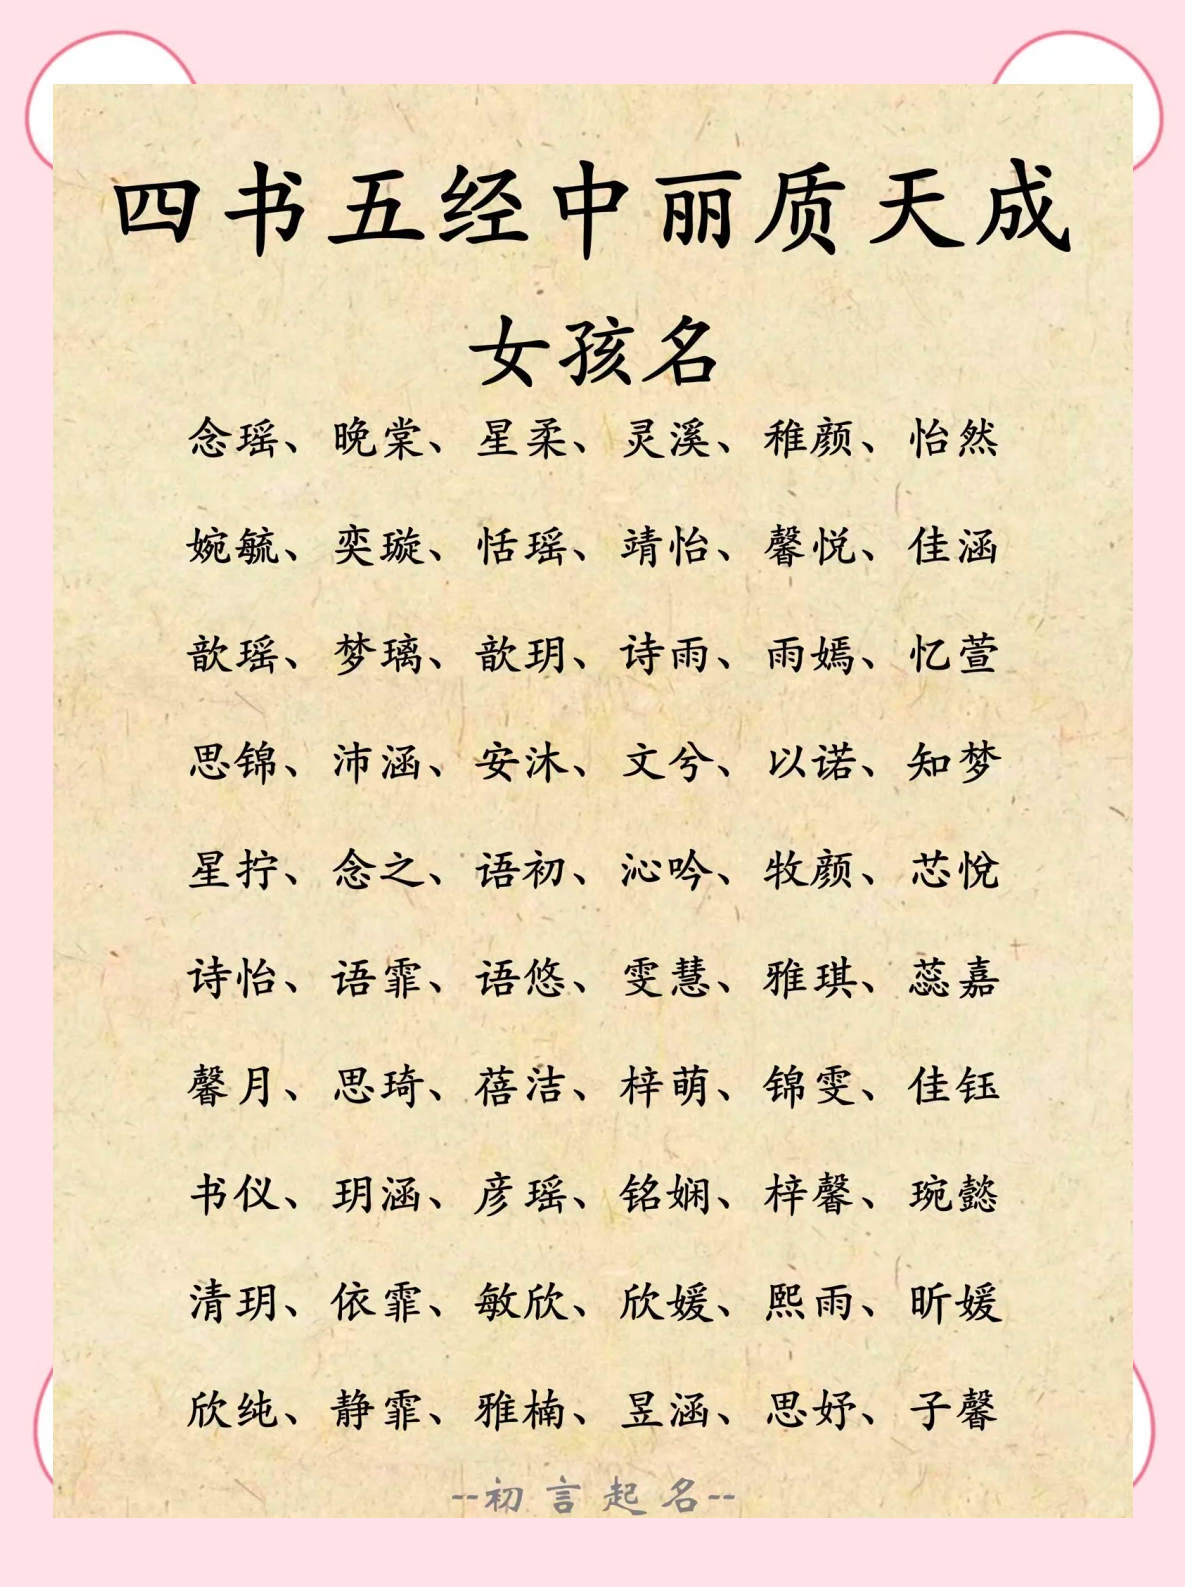 四书五经中丽质天成
女孩名
念瑶、晚棠、星柔、灵溪、稚颜、怡然
婉毓、奕璇、恬瑶、靖怡、馨悦、佳涵
歆瑶、梦璃、歆玥、诗雨、雨嫣、忆萱
思锦、沛涵、安沐、文兮、以诺、知梦
星拧、念之、语初、沁吟、牧颜、芯悅
诗怡、语霏、语悠、雯慧、雅琪、蕊嘉
馨月、思琦、蓓洁、梓萌、锦雯、佳钰
书仪、玥涵、彦瑶、铭娴、梓馨、琬懿
清玥、依霏、敏欣、欣媛、熙雨、昕媛
欣纯、静霏、雅楠、昱涵、思妤、子馨
--初言起名--